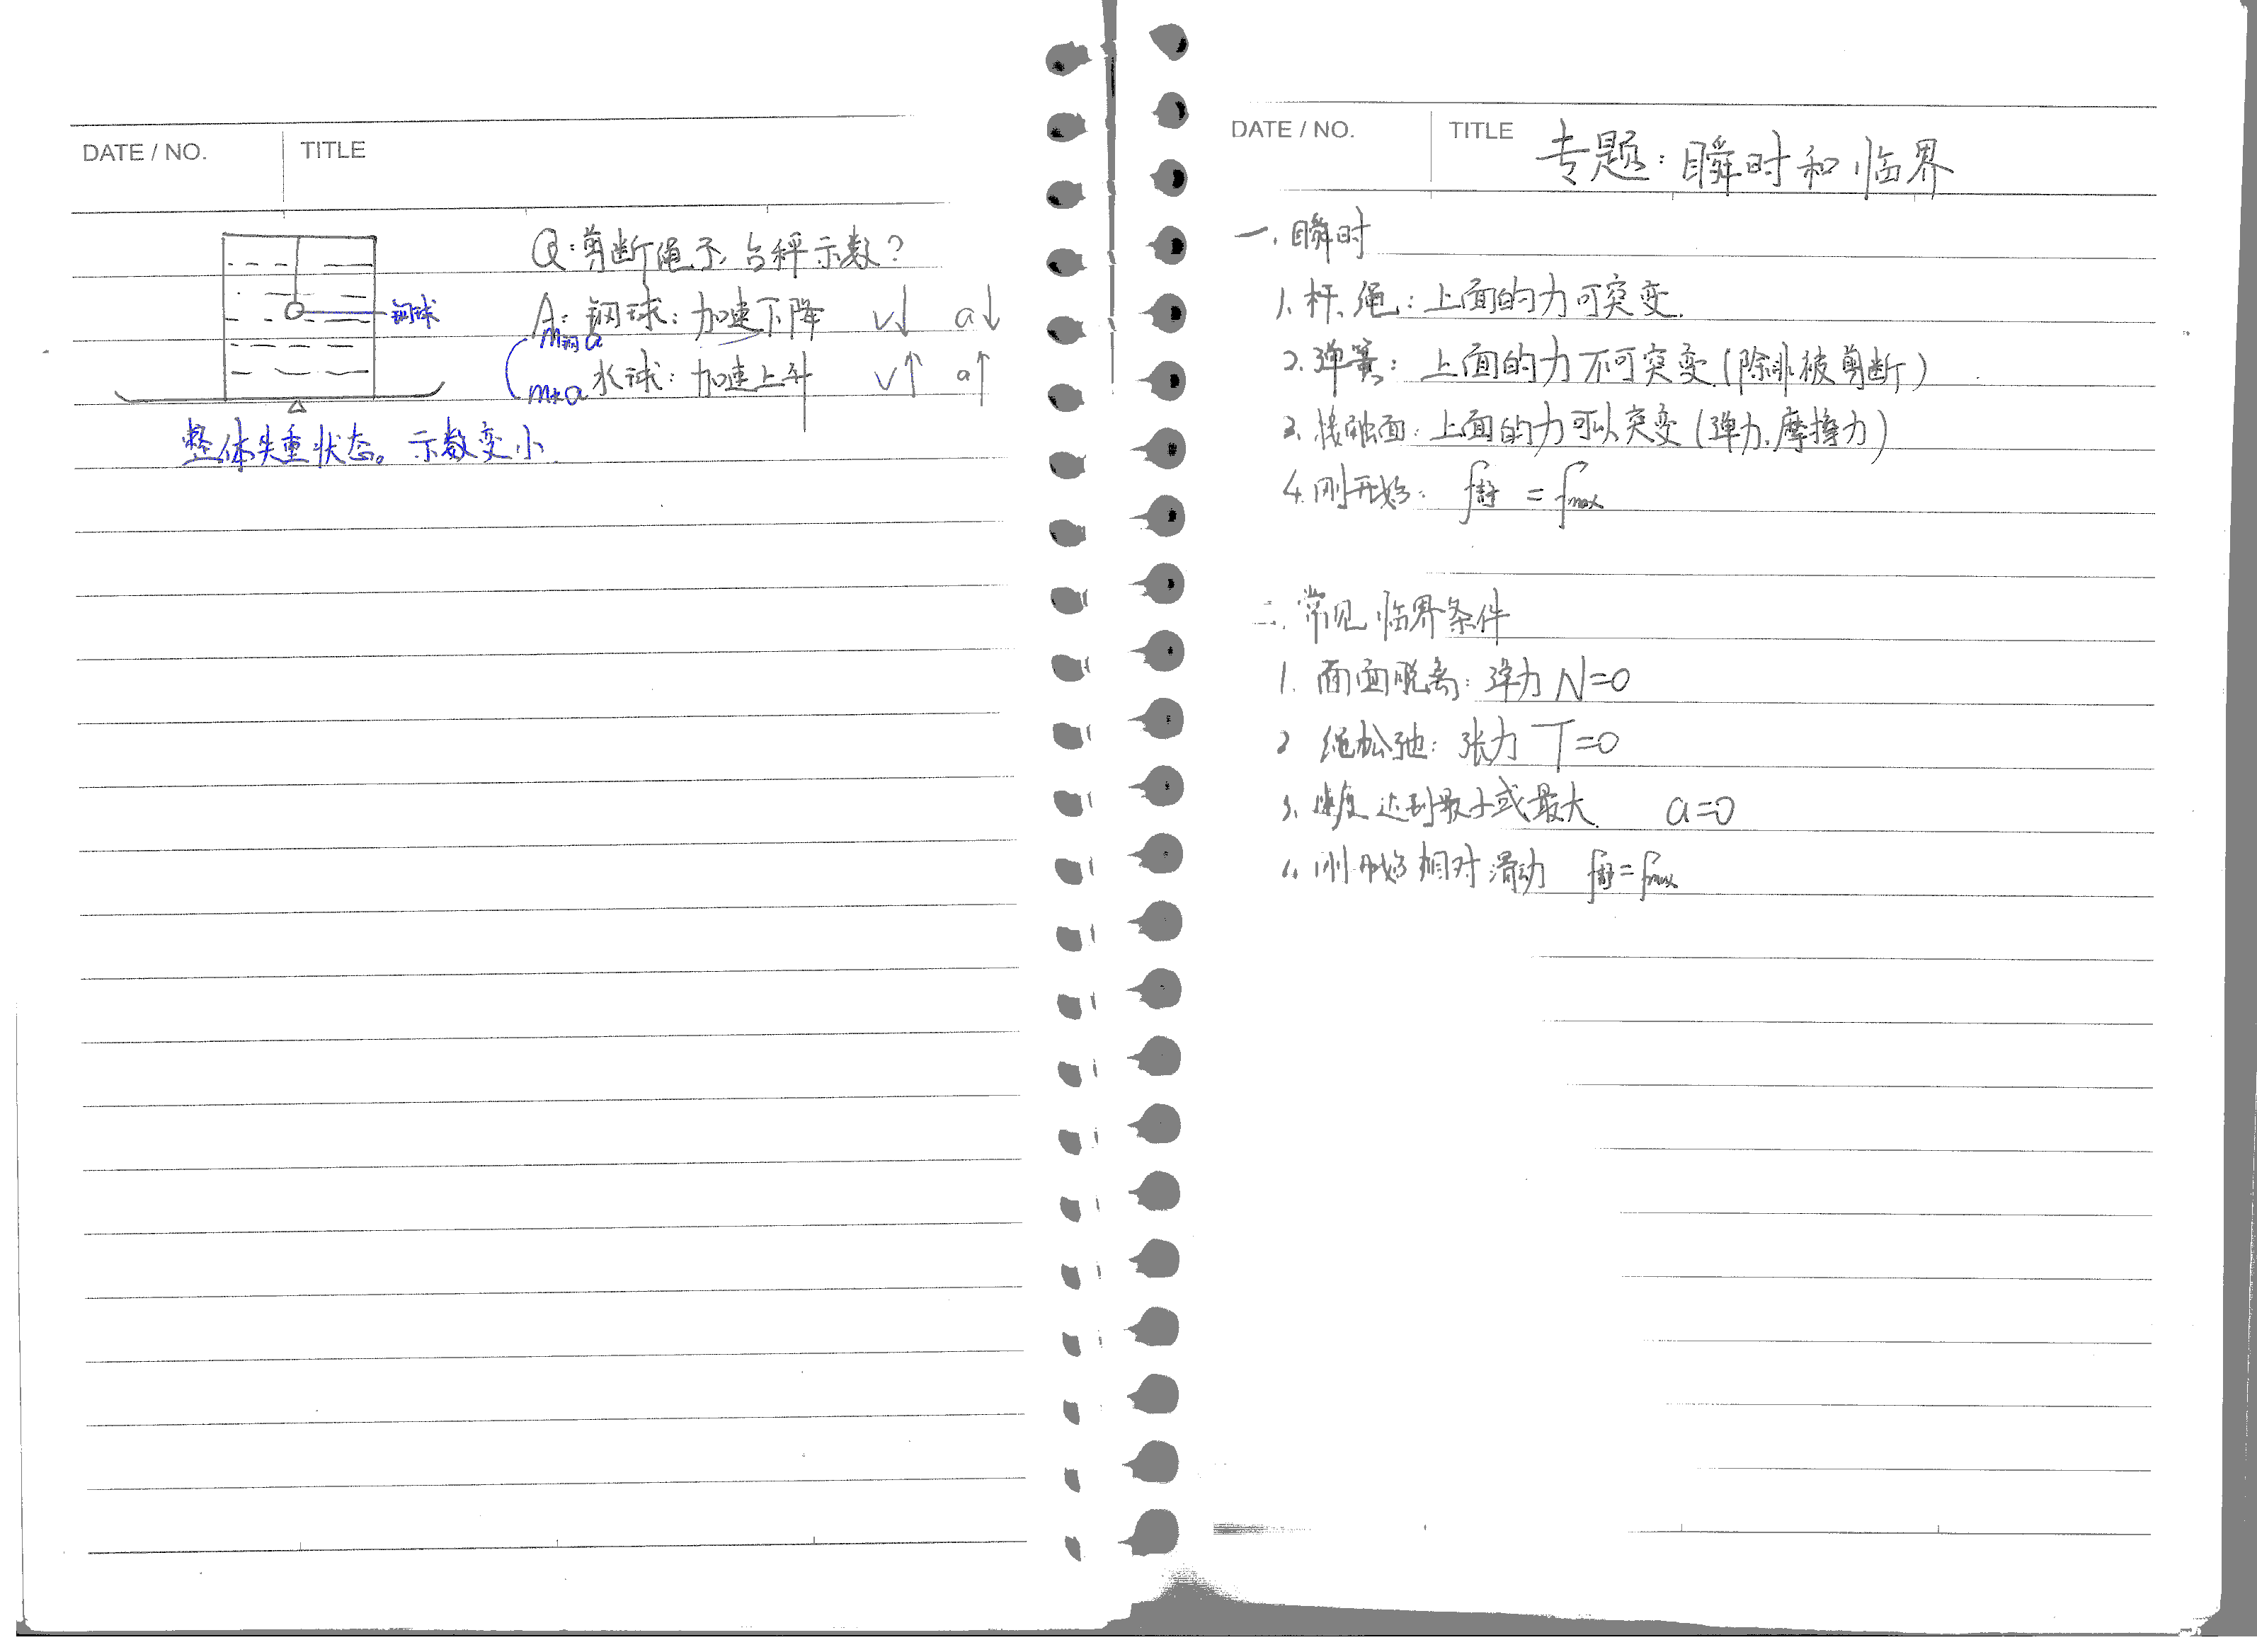 DATE / NO. TITLE
Q:剪断绳子,台秤示数?
钢球
A:钢球:加速下降 v↓ a↓
m钢a
水球:加速上升 v↑ a↑
m水a
整体失重状态。示数变小
DATE / NO. TITLE 专题:瞬时和临界
一.瞬时
1.杆、绳:上面的力可突变.
2.弹簧:上面的力不可突变(除非被剪断)
3.接触面:上面的力可以突变(弹力,摩擦力)
4.刚开始: f静 = fmax
二.常见临界条件
1.面面脱离:弹力 N=0
2 绳松弛:张力 T=0
3.速度达到最小或最大 a=0
4.刚开始相对滑动 f静=fmax